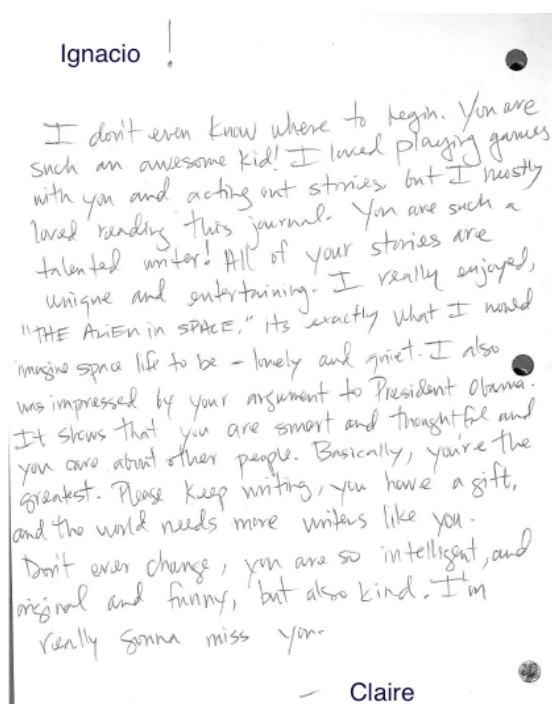 Ignacio !
I don't even know where to begin. You are
such an awesome kid! I loved playing games
with you and acting out stories, but I mostly
loved reading this journal. You are such a
talented writer! All of your stories are
unique and entertaining. I really enjoyed,
"THE ALIEN in SPACE." its exactly what I would
imagine space life to be - lonely and quiet. I also
was impressed by your argument to President Obama.
It shows that you are smart and thoughtful and
you care about other people. Basically, you're the
greatest. Please keep writing, you have a gift,
and the world needs more writers like you.
Don't ever change, you are so intelligent, and
original and funny, but also kind. I'm
really gonna miss you.
- Claire